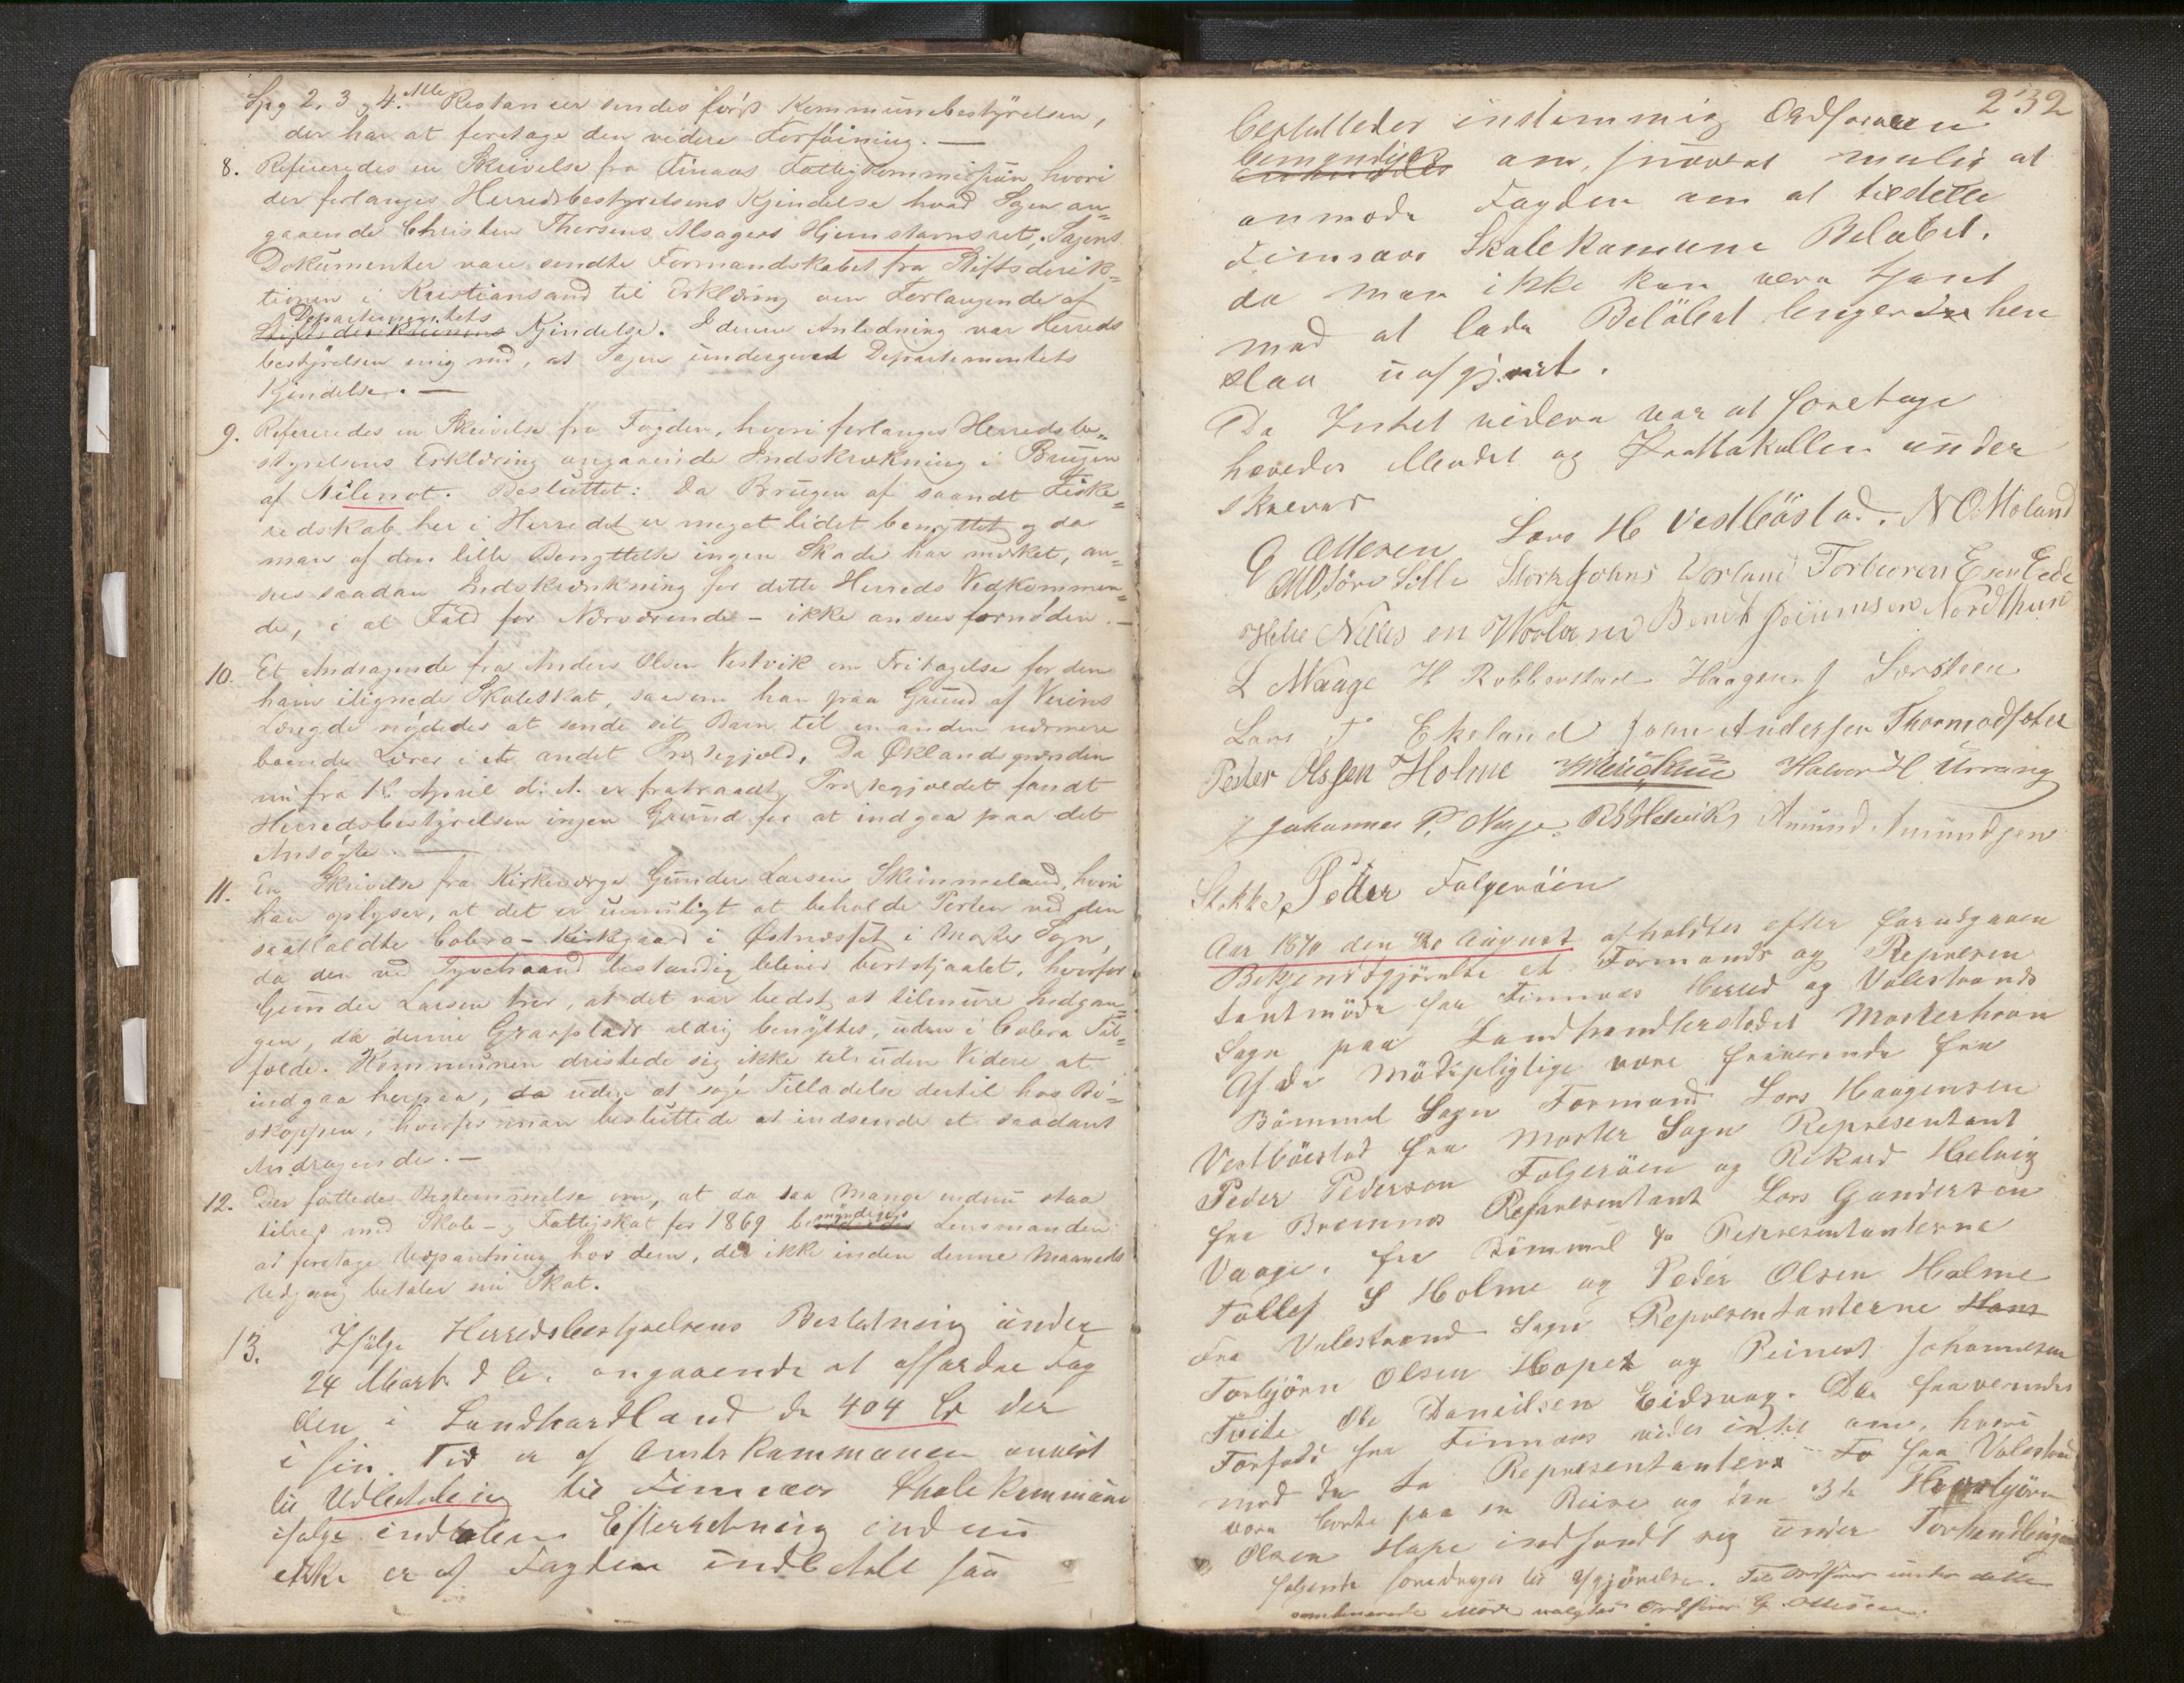 Spg 2, 3 og 4. Alle Restancer sendes først Kommunebestyrelsen,
der har at foretage den videre Forføining. —
8. Refereredes en Skrivelse fra Finaas Fattigkommission hvori
der forlanges Herredsbestyrelsens Kjendelse hvad Sagen an=
gaaende Christen Thorsens Alsagers Hjemstavnsret, Sagens
Dokumenter vare sendte Formandskabet fra Stiftsdirek=
tionen i Kristiansand til Erklæring om Forlangende af
Departementets
Stiftsdirektionens Kjendelse. I denne Anledning var Herreds
bestyrelsen enig med, at Sagen undergives Departementets
Kjendelse. —
9. Refereredes en Skrivelse fra Fogden, hvori forlanges Herredsbe=
styrelsens Erklæring angaaende Indskrækning i Brugen
af Silenot. Besluttet: Da Brugen af saandt Fiske=
redskab her i Herredet er meget lidet benyttet og da
man af den lille Benyttelse ingen Skade har mærket, an=
sees saadan Indskrænkning for dette Herreds Vedkommen=
de, i al Fald for Nærværende – ikke ansees fornøden. —
10. Et Andragende fra Anders Olsen Vestvik om Fritagelse for den
ham ilignede Skoleskat, saasom han paa Grund af Veiens
Længde nødedes at sende sit Barn til en anden nærmere
boende Lærer i et andet Præstegjeld. Da Økland grænden
nu fra 1ste April d. A. er fratraadt Præstegjeldet fandt
Herredsbestyrelsen ingen Grund for at indgaa paa det
Ansøgte. —
11. En Skrivelse fra Kirkeværge Gunder Larsen Skimmeland, hvori
han oplyser, at det er umuligt at beholde Porten ved den
saakaldte Colera-Kirkgaard i Østnesset i Moster Sogn,
da den ved Tyvehaand bestandig bliver bortstjaalet, hvorfor
Gunder Larsen tror, at det var bedst at tilmure Indgan=
gen, da denne Gravplads aldrig benyttes, uden i Colera Til=
fælde. Kommunen dristede sig ikke til uden Videre at
indgaa herpaa, da uden at søge Tilladelse dertil hos Bi=
skoppen, hvorfor man besluttede at indsende et saadant
Andragende. —
12. Der fattedes Bestemmelse om, at da saa Mange endnu staa
tilrest med Skole- og Fattigskat for 1869 bemyndiges Lensmanden
at foretage Udpantning hos dem, der ikke inden denne Maaneds
Udgang betaler sin Skat.
13. Ifølge Herredsbestyrelsens Beslutning under
24 Marts d A. angaaende at affordre Fog
den i Sundhordland de 404 Sp der
i sin Tid er af Amtskommunen anvist
til Udbetaling til Finnaas Skolekommune
ifølge indkaleen Efterretning endnu
ekke er af Fogden indbetalt saa
232
besluttedes instemmig Ordføreren
bemyndiges om, snarest mulig at
anmode Fogden om at tilstelle
Finnaas Skolekommune Beløbet.
da man ikke kan være tjent
med at lade Beløbet lenger hen
staa uafgjort.
Da Intet videre var at foretage
hævedes Mødet og Prottokollen under
skreves
G Ottesen Lars H Vestbøstad. N O. Moland
Store Johns Vorland Torberen E sen Eede
Helie Nilss en Vorland Bendt Joiumsen Nordthun
L Waage H Robberstad Haagen J Særsteen
Lars T Ekeland John Andersen Thormodsæter
Peder Olssen Holme Halvor H Urrang
Johannes P. Nøgge R Helvik Amund Amundsen
Stokke, Peder Folgerøen
Aar 1870 den 20 August afholdtes efter forudgaaen
Bekjendtgjørelse et Formands og Represen
tantmøde for Finnaas Herred og Valestrands
Sogn paa Landhandlerstedet Mosterhavn
Af de Mødepligtige vare fraverende fra
Bømmel Sogn Formand Lars Haagensen
Vestbøstad fra Moster Sogn Representant
Peder Pedersen Folgerøen og Rikard Helvig
fra Bremnes Representant Lars Gundersen
Vaage. fra Bömmel to Representanterne
Tollef S Holme og Peder Olsen Holme
fra Valestrand Sogn Representanterne Hans
Torbjørn Olsen Hope og Reinert Johannesen
Tveite Ole Danielsen Eidsvag. De fraverendes
Forfald fra Finnaas vides intet om, hvori
mod de to Representanter fra Valestrand
vare borte paa en Reise og den 3de Torbjörn
Olsen Hope indfandt sig under Forhandlingen
følgende foredrages til Afgjørelse. Til Ordfører under dette
combinerede Møde valgtes Ordfører G. Ottesen.